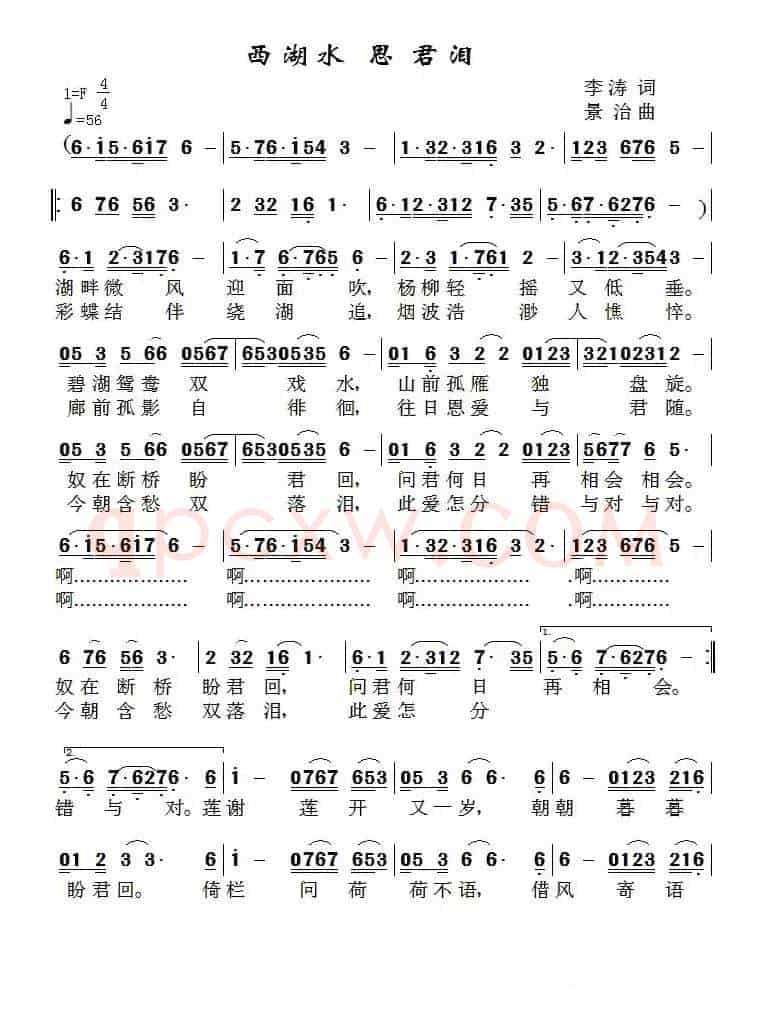 西湖水 思君泪
1=F 4/4
♩=56
李涛 词
景治 曲
(6·i5·6i7 6 - | 5·76·i54 3 - | 1·32·316 3 2· | 123 676 5 -
‖: 6 76 56 3· | 2 32 16 1· | 6·12·312 7·35 | 5·67·6276 - )
6·1 2·3176 - | 1·7 6·765 6 - | 2·3 1·761 2 - | 3·12·3543 -
湖畔微 风 迎 面 吹, 杨柳轻 摇 又低 垂。
彩蝶结 伴 绕 湖 追, 烟波浩 渺 人憔 悴。
05 3 5 66 0567 | 6530535 6 - | 01 6 3 2 2 0123 | 32102312 -
碧湖鸳鸯 双 戏水, 山前孤雁 独 盘旋。
廊前孤影 自 徘徊, 往日恩爱 与 君随。
05 3 5 66 0567 | 6530535 6 - | 01 6 3 2 2 0123 | 5677 6 5·
奴在断桥盼 君回, 问君何日 再 相会相会。
今朝含愁双 落泪, 此爱怎分 错 与对与对。
qpcxw.COM
6·i5·6i7 6 - | 5·76·i54 3 - | 1·32·316 3 2· | 123 676 5 -
啊………………… 啊………………… 啊………………… .啊…………….
啊………………… 啊………………… 啊………………… .啊…………….
1.
6 76 56 3· | 2 32 16 1· | 6·1 2·312 7· 35 | 5·6 7·6276 - :‖
奴在 断桥 盼君回, 问君何 日 再 相 会。
今朝 含愁 双落泪, 此爱怎 分
2.
5·6 7·6276· 6 | i - 0767 653 | 05 3 6 6· 6 | 6 - 0123 216
错 与 对。莲谢 莲 开 又一岁, 朝朝 暮 暮
01 2 3 3· 6 | i - 0767 653 | 05 3 6 6· 6 | 6 - 0123 216
盼君回。 倚栏 问 荷 荷不语, 借风 寄 语